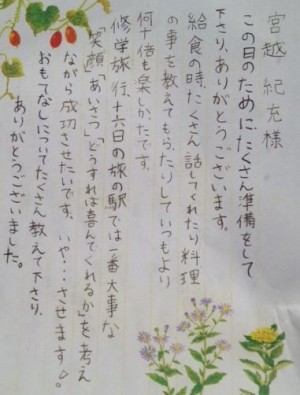 宮越紀充様
この日のために、たくさん準備をして
下さり、ありがとうございます。
給食の時、たくさん話してくれたり料理
の事を教えてもらったりしていつもより
何十倍も楽しかたです。
修学旅行、十六日の旅の駅では一番大事な
笑顔「あいさつ」「どうすれば喜んでくれるか」を考え
ながら成功させたいです。いや・・・させます。
おもてなしについてたくさん教えて下さり、
ありがとうございました。